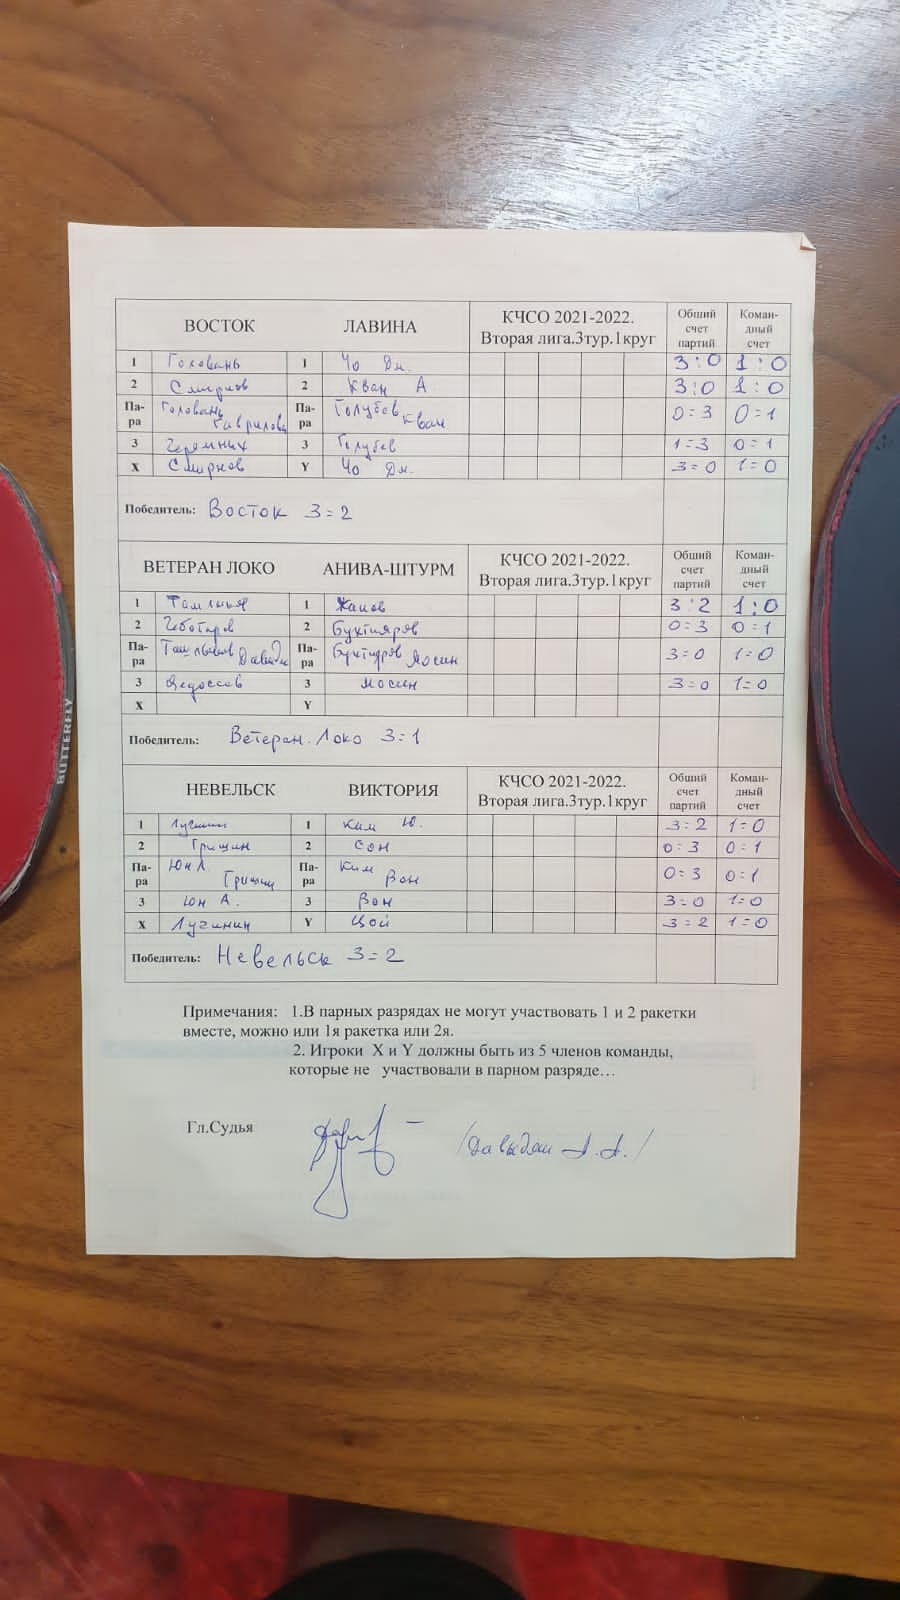 ВОСТОК ЛАВИНА КЧСО 2021-2022. Вторая лига.3тур.1круг Общий счет партий Коман-дный счет
1 Головань 1 Чо Дм. 3:0 1:0
2 Смирнов 2 Кван А 3:0 1:0
Па-ра Головань Гаврилова Па-ра Голубев Кван 0=3 0=1
3 Черемных 3 Голубев 1=3 0=1
X Смирнов Y Чо Дм. 3=0 1=0
Победитель: Восток 3=2
ВЕТЕРАН ЛОКО АНИВА-ШТУРМ КЧСО 2021-2022. Вторая лига.3тур.1круг Общий счет партий Коман-дный счет
1 1 3:2 1:0
2 Чеботарев 2 Бухтияров 0=3 0=1
Па-ра Па-ра Бухтияров Мосин 3=0 1=0
3 3 Мосин 3=0 1=0
X Y
Победитель: Ветеран.Локо 3=1
НЕВЕЛЬСК ВИКТОРИЯ КЧСО 2021-2022. Вторая лига.3тур.1круг Общий счет партий Коман-дный счет
1 1 Ким Ю. 3=2 1=0
2 Гришин 2 Сон 0=3 0=1
Па-ра Юн А Гришин Па-ра Ким Вон 0=3 0=1
3 Юн А. 3 Вон 3=0 1=0
X Лучинин Y Цой 3=2 1=0
Победитель: Невельск 3=2
Примечания: 1.В парных разрядах не могут участвовать 1 и 2 ракетки
вместе, можно или 1я ракетка или 2я.
2. Игроки X и Y должны быть из 5 членов команды,
которые не участвовали в парном разряде…
Гл.Судья
BUTTERFLY